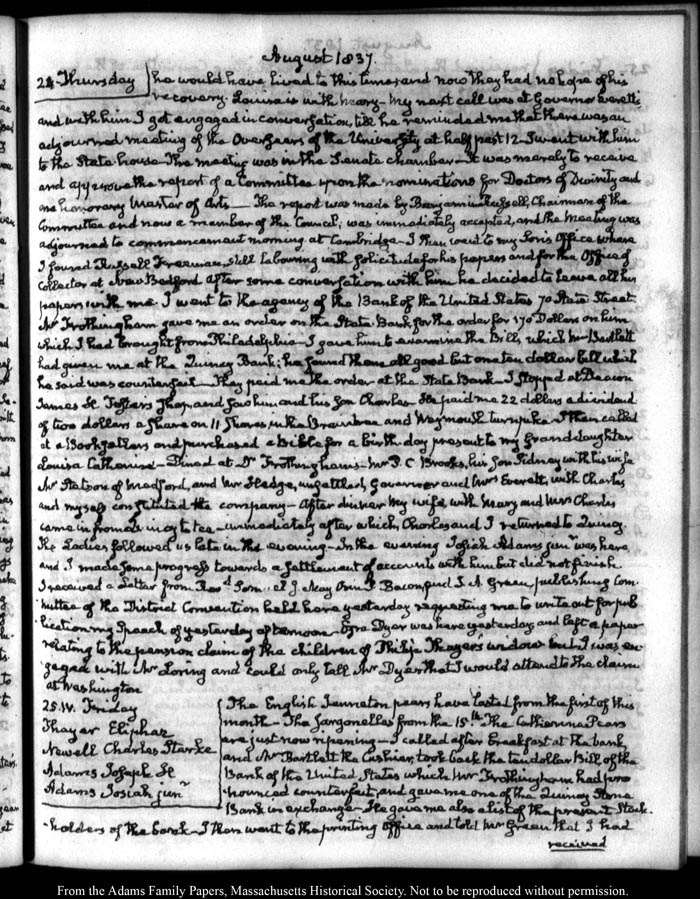 August 1837.
24. Thursday he would have lived to this time; and now they had no hope of his
recovery. Louisa is with Mary. My next call was at Governor Everett's
and with him I got engaged in conversation, till he reminded me that there was an
adjourned meeting of the Overseers of the University at half past 12. I went with him
to the State house. The meeting was in the Senate chamber. It was merely to receive
and approve the report of a Committee upon the nominations for Doctors of Divinity and
one honorary Master of Arts. The report was made by Benjamin Russell, Chairman of the
Committee and now a member of the Council; was immediately accepted, and the Meeting was
adjourned to commencement morning at Cambridge. I then went to my Son's Office where
I found Russell Freeman, still labouring with solicitude for his papers and for the Office of
Collector at New Bedford. After some conversation with him he decided to leave all his
papers with me. I went to the agency of the Bank of the United States 70 State Street.
Mr Frothingham gave me an order on the State Bank for the order for 170 Dollars on him
which I had brought from Philadelphia. I gave him to examine the Bills which Mr Bartlett
had given me at the Quincy Bank; he found them all good but one ten dollar bill which
he said was counterfeit. They paid me the order at the State Bank. I stopped at Deacon
James H. Foster's shop, and saw him and his Son Charles. He paid me 22 dollars a dividend
of two dollars a share on 11 shares in the Braintree and Weymouth turnpike. I then called
at a Booksellers and purchased a Bible for a birth day present to my Grand daughter
Louisa Catherine. Dined at Dr Frothingham's. Mr P. C. Brooks, his Son Sidney with his wife
Mr Stetson of Medford, and Mr Hedge, unsettled, Governor and Mrs Everett, with Charles
and myself constituted the company. After dinner my wife with Mary and Mrs Charles
came in from Quincy to tea. immediately after which, Charles and I returned to Quincy.
The Ladies followed us late in the evening. In the evening Josiah Adams junr was here,
and I made some progress towards a settlement of accounts with him but did not finish.
I received a Letter from Revd Samuel J. May Orin P. Bacon, and J. A. Green, publishing Com-
mittee of the District Convention held here yesterday requesting me to write out for pub-
lication my Speech of yesterday afternoon. Dyer was here yesterday and left a paper
relating to the pension claim of the children of Philip Thayer's widow but I was en-
gaged with Mr Loring and could only tell Mr Dyer that I would attend to the claim
at Washington
25. IV. Friday
Thayer Eliphaz
Newell Charles Starke
Adams Joseph H
Adams Josiah junr
The English Jenneton pears have lasted from the first of this
month. The Jargonelles from the 15th. The Catherine Pears
are just now ripening. I called after breakfast at the bank,
and Mr Bartlett the Cashier, took back the ten dollar Bill of the
Bank of the United States which Mr Frothingham had pro
nounced counterfeit, and gave me one of the Quincy Stone
Bank in exchange. He gave me also a list of the present Stock-
holders of the Bank. I then went to the printing Office and told Mr Green that I had
received
From the Adams Family Papers, Massachusetts Historical Society. Not to be reproduced without permission.